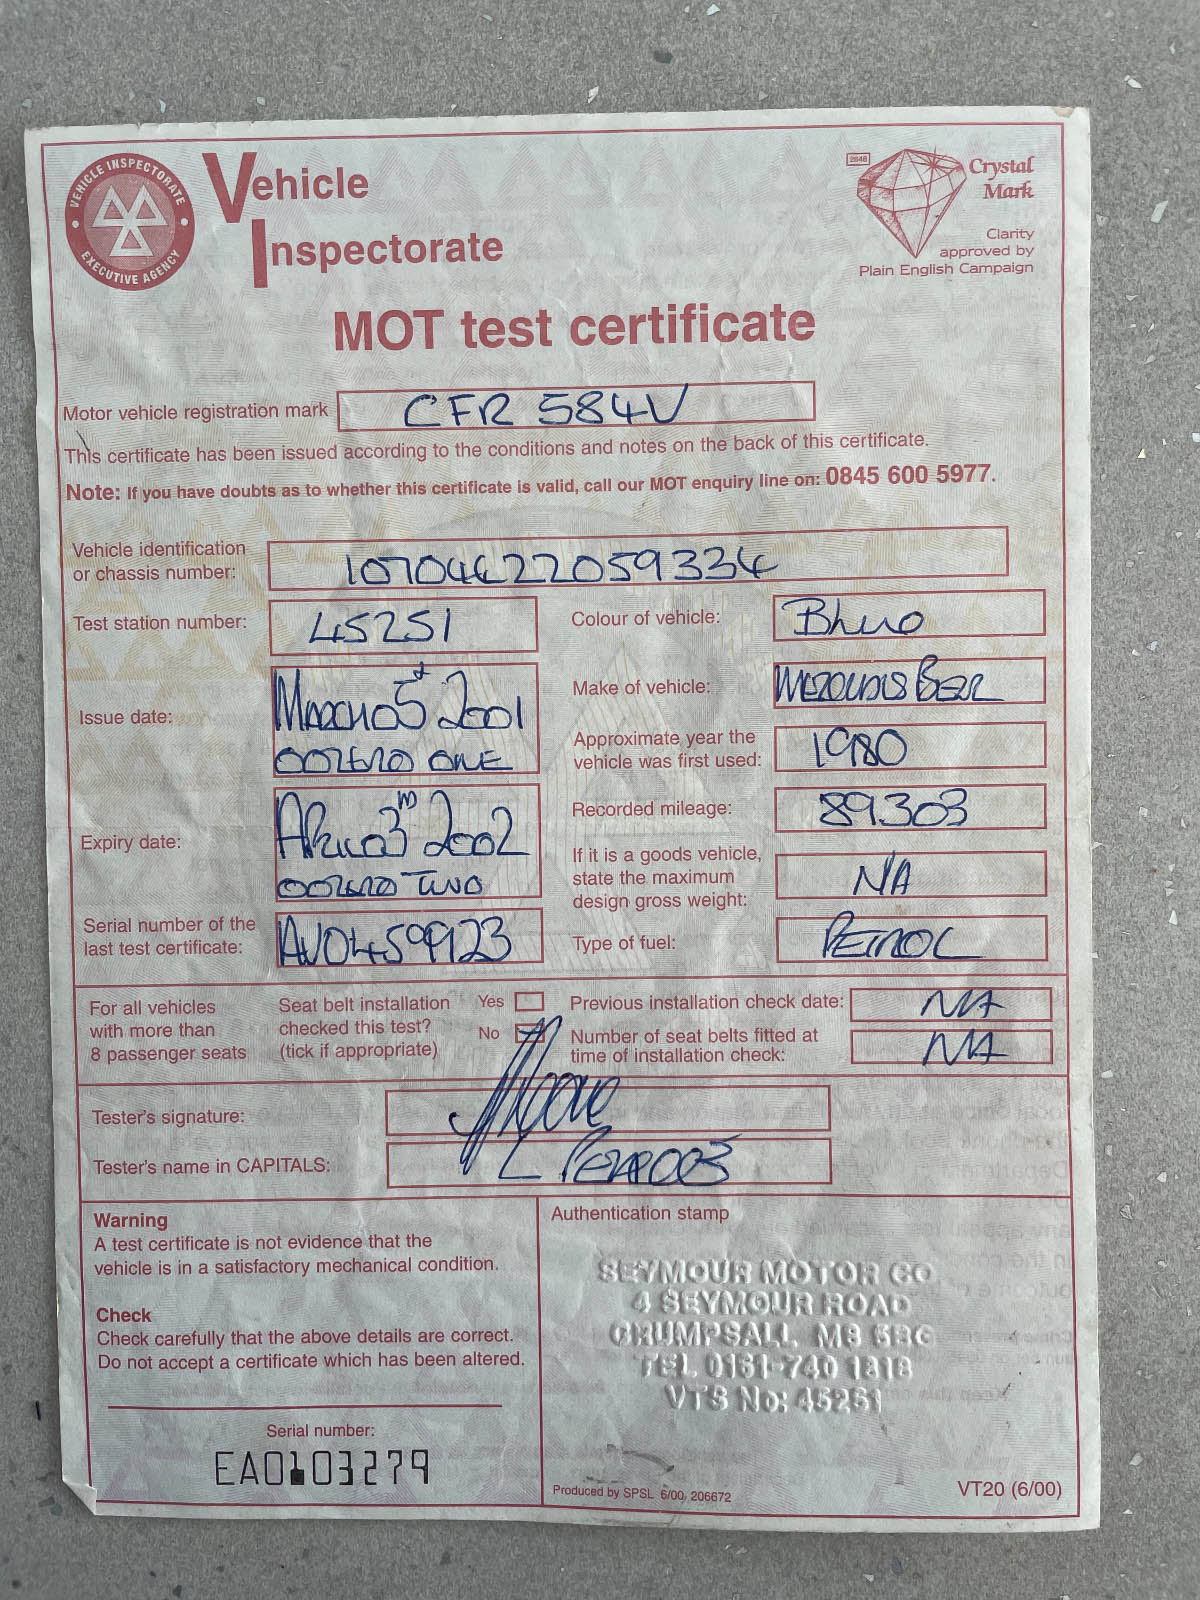 VEHICLE INSPECTORATE
EXECUTIVE AGENCY
Vehicle
Inspectorate
2848
Crystal
Mark
Clarity
approved by
Plain English Campaign
MOT test certificate
Motor vehicle registration mark CFR 584V
This certificate has been issued according to the conditions and notes on the back of this certificate.
Note: If you have doubts as to whether this certificate is valid, call our MOT enquiry line on: 0845 600 5977.
Vehicle identification
or chassis number: 10704422059334
Test station number: 45251
Colour of vehicle: Blue
Issue date: March 5 2001
ZERO ONE
Make of vehicle: Mercedes Benz
Approximate year the
vehicle was first used: 1980
Expiry date: April 3 2002
ZERO TWO
Recorded mileage: 89303
If it is a goods vehicle,
state the maximum
design gross weight: NA
Serial number of the
last test certificate: AV0459923
Type of fuel: PETROL
For all vehicles
with more than
8 passenger seats
Seat belt installation
checked this test?
(tick if appropriate)
Yes
No
Previous installation check date: NA
Number of seat belts fitted at
time of installation check: NA
Tester's signature:
Tester's name in CAPITALS:
Warning
A test certificate is not evidence that the
vehicle is in a satisfactory mechanical condition.
Check
Check carefully that the above details are correct.
Do not accept a certificate which has been altered.
Serial number:
EA0103279
Authentication stamp
SEYMOUR MOTOR CO
4 SEYMOUR ROAD
CRUMPSALL, M8 5BG
TEL 0161-740 1818
VTS No: 45251
Produced by SPSL 6/00 206672
VT20 (6/00)